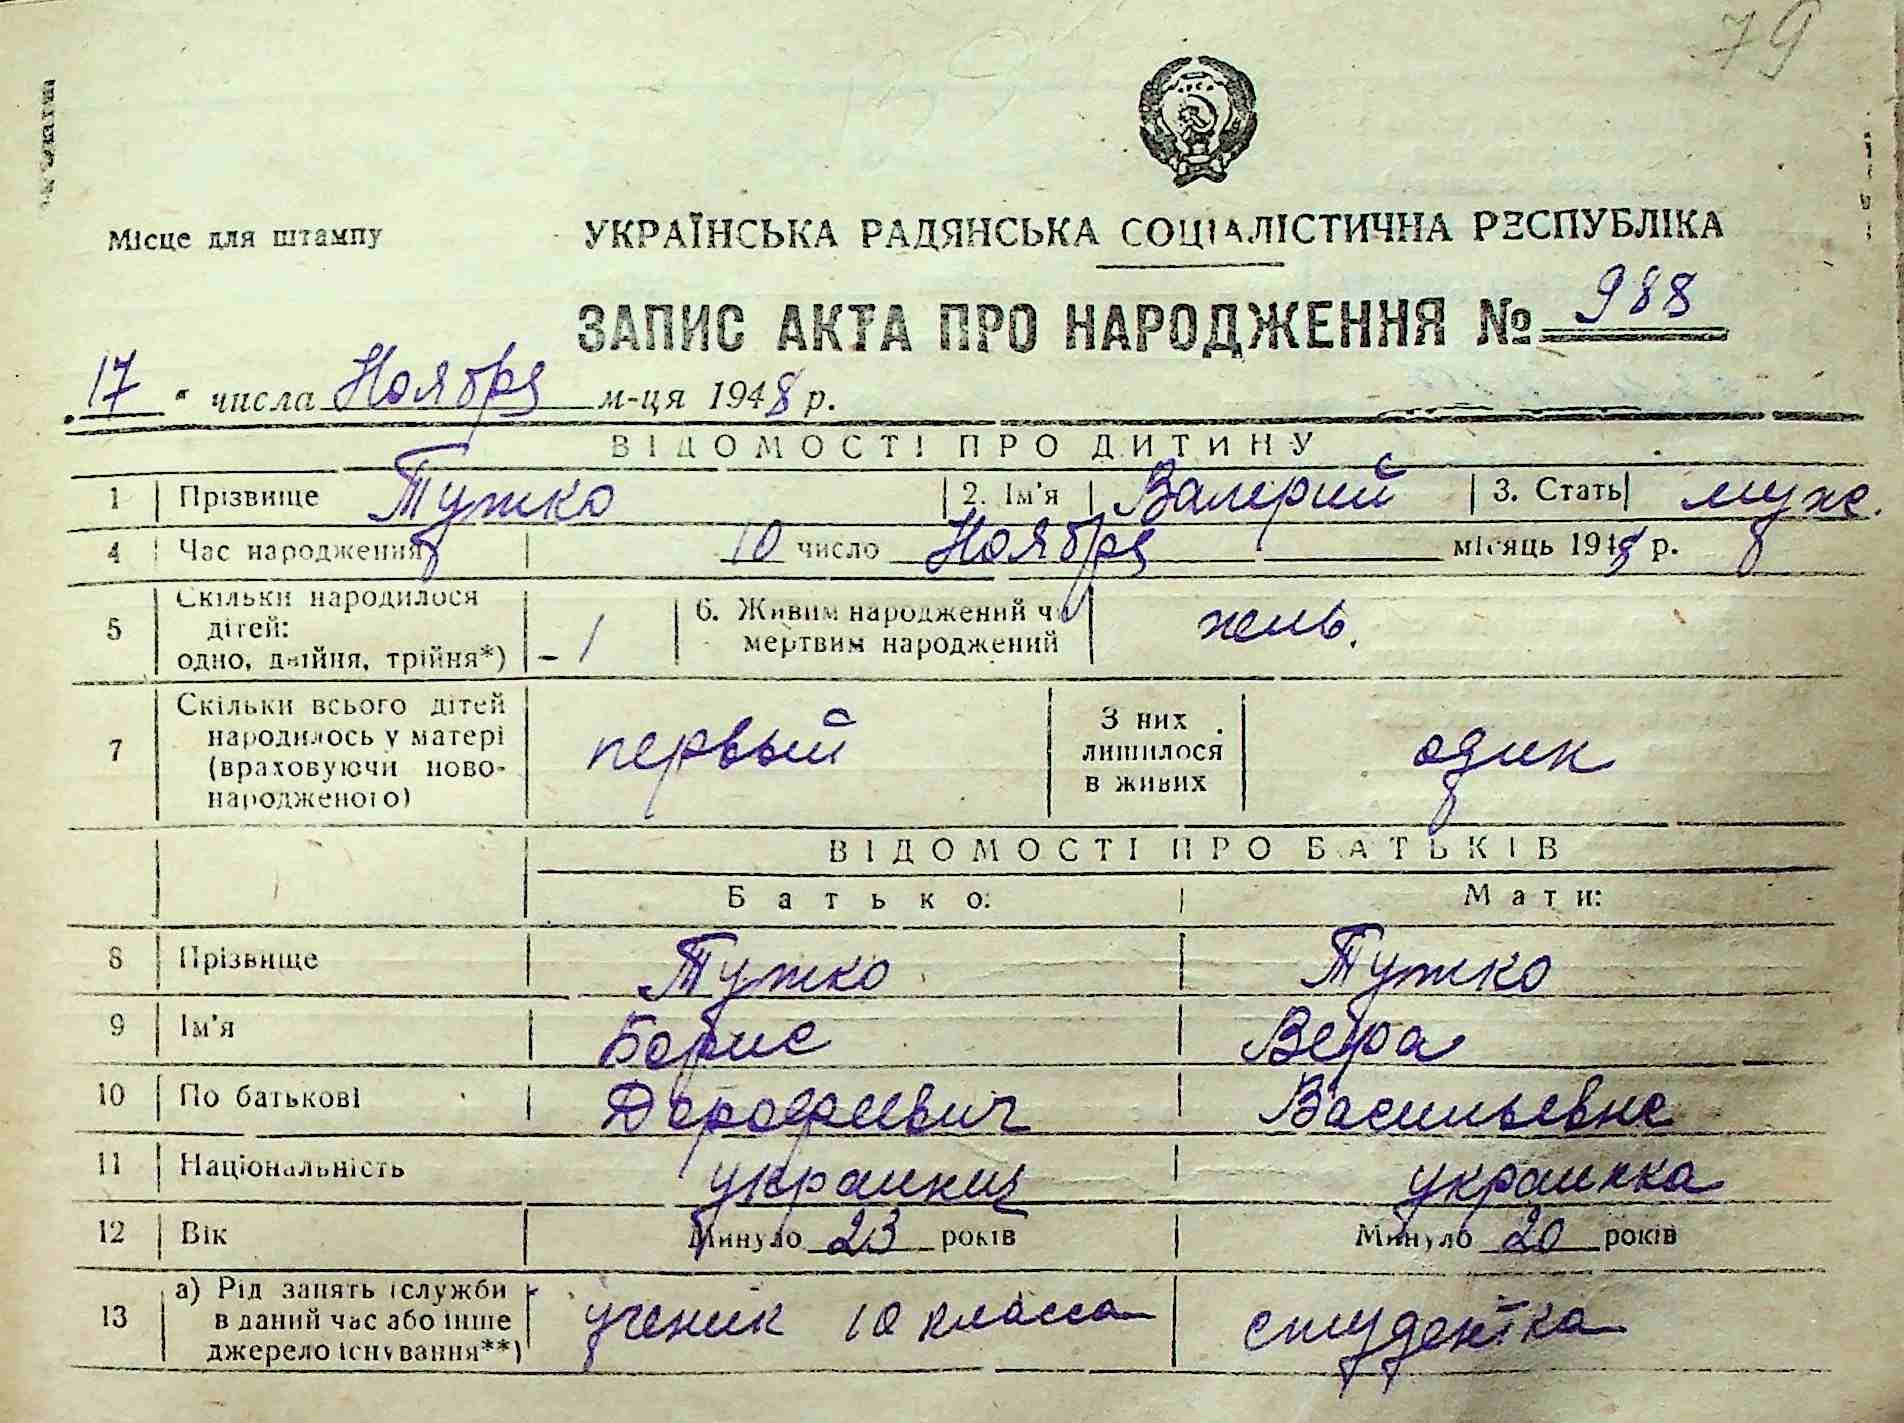 79
Місце для штампу
УКРАЇНСЬКА РАДЯНСЬКА СОЦІАЛІСТИЧНА РЕСПУБЛІКА
ЗАПИС АКТА ПРО НАРОДЖЕННЯ № 988
„17“ числа Ноября м-ця 1948 р.
ВІДОМОСТІ ПРО ДИТИНУ
1 Прізвище Тужко 2. Ім'я Валерий 3. Стать муж.
4 Час народження 10 число Ноября місяць 1948 р.
5 Скільки народилося дітей: одно, двійня, трійня*) - 1 6. Живим народжений чи мертвим народжений
7 Скільки всього дітей народилось у матері (враховуючи новонародженого) первый З них лишилося в живих один
ВІДОМОСТІ ПРО БАТЬКІВ
Батько: Мати:
8 Прізвище Тужко Тужко
9 Ім'я Борис Вера
10 По батькові Дорофеевич Васильевне
11 Національність украинец украинка
12 Вік Минуло 23 років Минуло 20 років
13 а) Рід занять (служби в даний час або інше джерело існування**) ученик 10 класса студентка